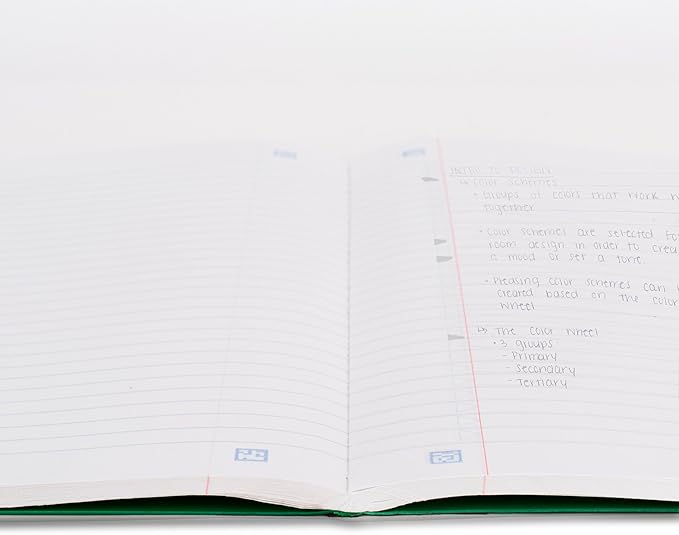 INTRO TO DESIGN
↳ Color Schemes
• Groups of colors that work
together
• Color schemes are selected for
room design in order to
a mood or set a tone.
• Pleasing color schemes can
created based on the color
wheel
↳ The Color Wheel
• 3 groups
- Primary
- Secondary
- Tertiary